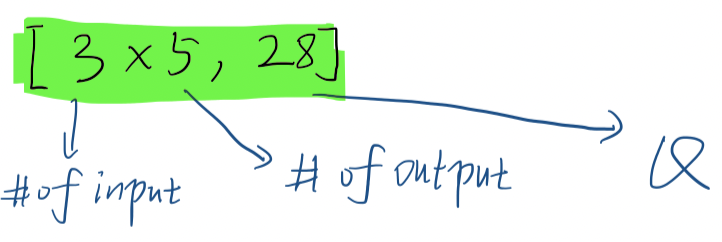 [ 3 × 5 , 28 ]
# of input
# of output